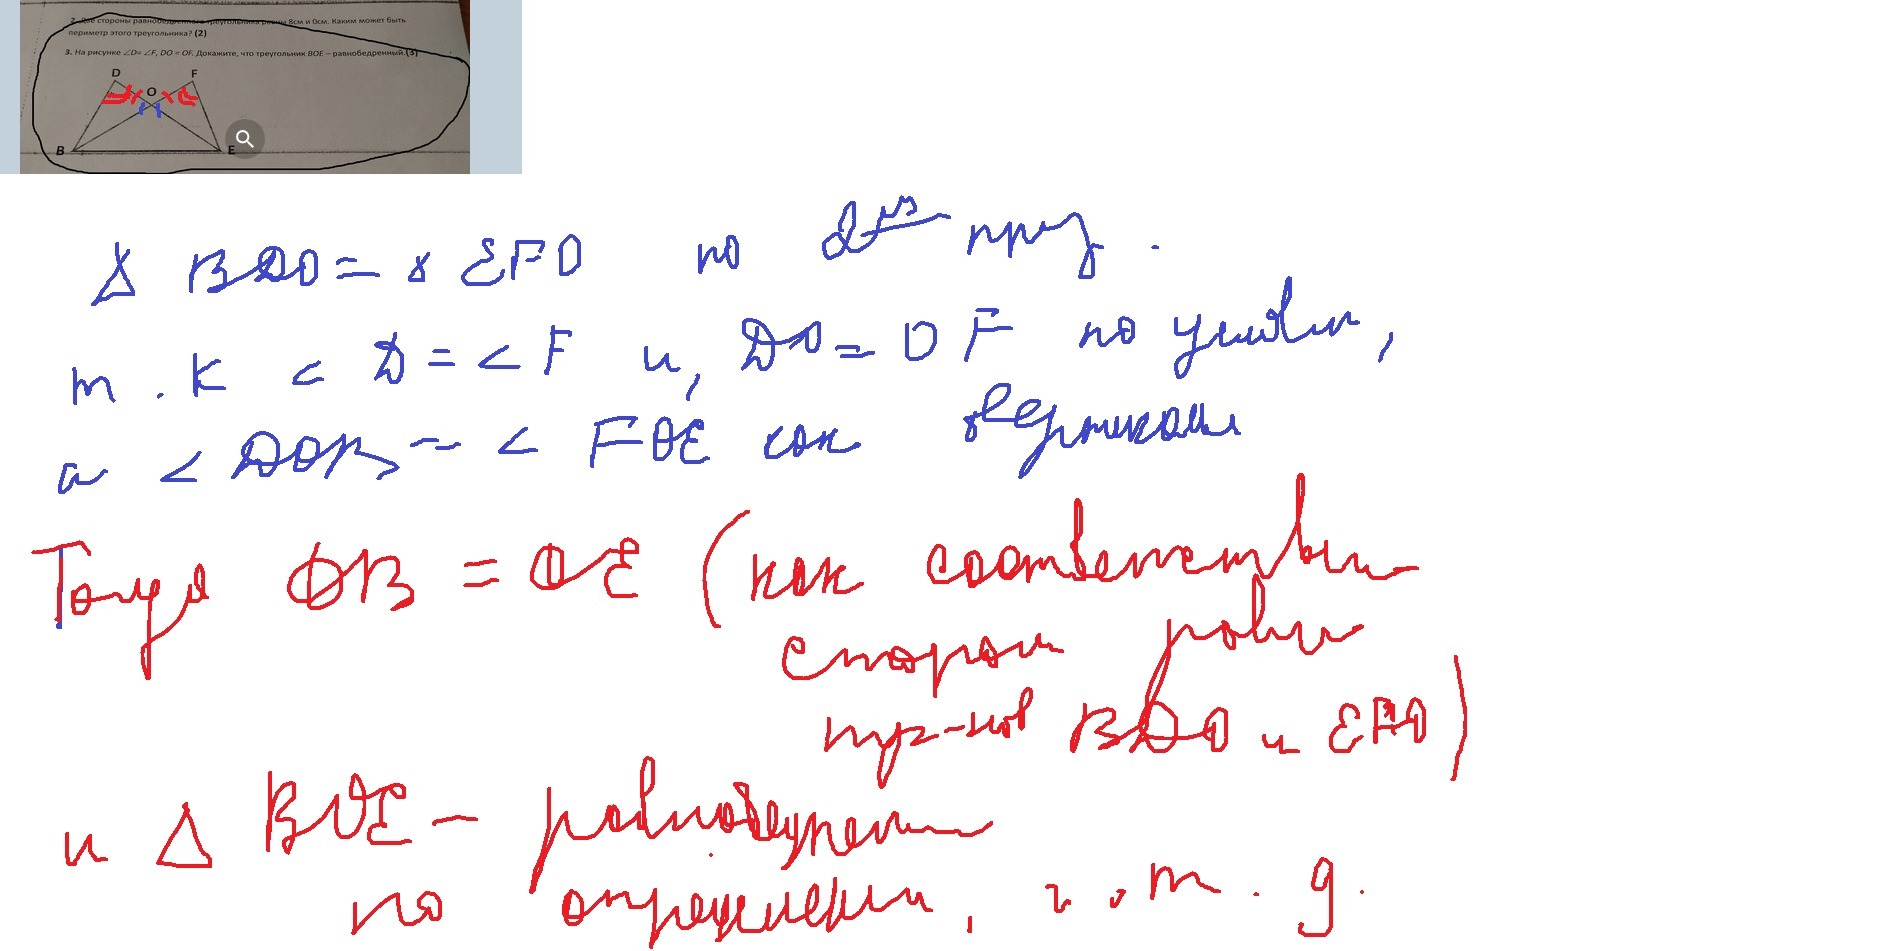 2. Две стороны равнобедренного треугольника равны 8см и 0см. Каким может быть
периметр этого треугольника? (2)
3. На рисунке ∠D= ∠F, DO = OF. Докажите, что треугольник BOE – равнобедренный.(3)
D F
O
B E
Δ BDO = Δ EFO по 2му приз.
т.к < D = < F и, DO = OF по услови,
а < DOB = < FOE как вертикальн
Тогда OB = OE (как соответстви
сторон равн
тр-ков BDO и EFO)
и Δ BOE – равнобедрен
по определени, ч.т.д.